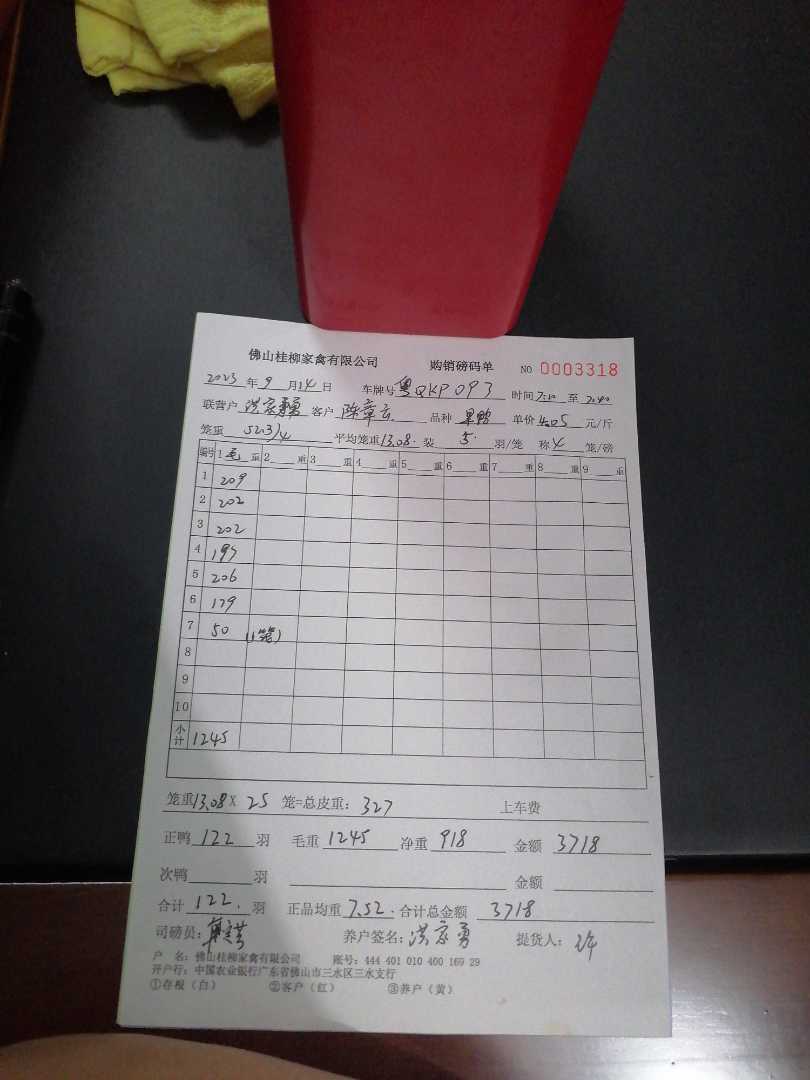 佛山桂柳家禽有限公司 购销磅码单 NO 0003318
2023年9月14日 车牌号粤QKP093 时间7:20至7:40
联营户洪家勇 客户陈章云 品种果鸭 单价4.05元/斤
笼重52.3/4 平均笼重13.08 装5羽/笼 称4笼/磅
编号 1毛重 2重 3重 4重 5重 6重 7重 8重 9重
1 209
2 202
3 202
4 197
5 206
6 179
7 50 (1笼)
8
9
10
小计 1245
笼重13.08X25笼=总皮重：327 上车费
正鸭122羽 毛重1245净重918 金额3718
次鸭羽 金额
合计122.羽 正品均重7.52.合计总金额3718
司磅员： 养户签名：洪家勇 提货人：
户 名：佛山桂柳家禽有限公司 账号：444 401 010 400 169 29
开户行：中国农业银行广东省佛山市三水区三水支行
①存根（白） ②客户（红） ③养户（黄）